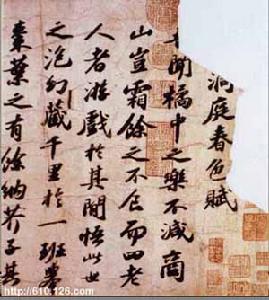 洞庭春色賦
聞橘中之樂不減商
山豈霜餘之不食而四老
人者游戲於其間悟此世
之泡幻藏千里於一班舉
棗葉之有餘納芥子其
http://610.126.com